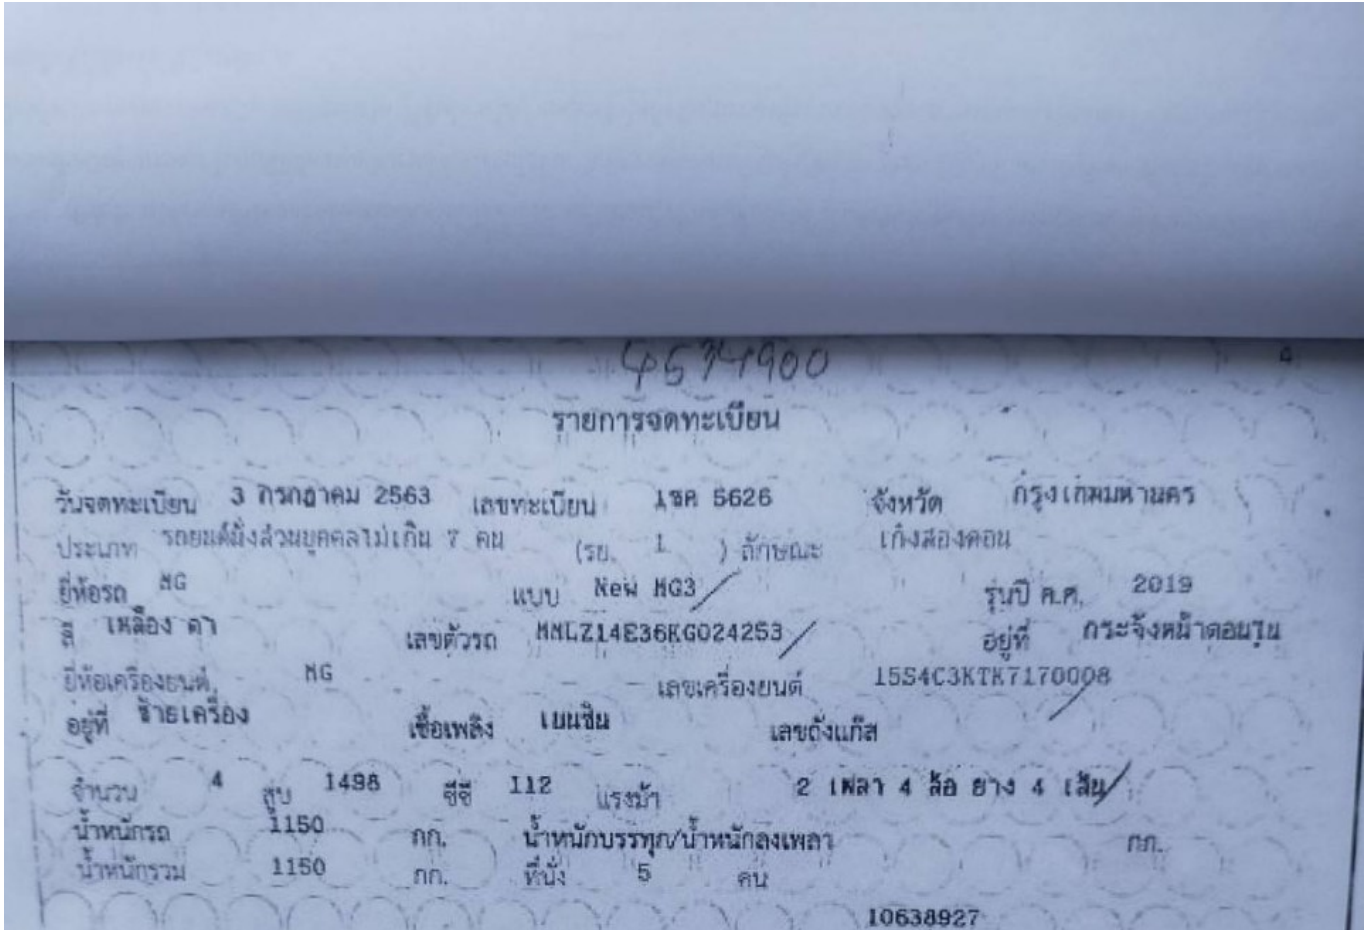 4574900
รายการจดทะเบียน
วันจดทะเบียน 3 กรกฎาคม 2563 เลขทะเบียน 1ขค 5626 จังหวัด กรุงเทพมหานคร
ประเภท รถยนต์นั่งส่วนบุคคลไม่เกิน 7 คน (รย. 1 ) ลักษณะ เก๋งสองตอน
ยี่ห้อรถ MG แบบ New MG3 รุ่นปี ค.ศ. 2019
สี เหลือง ดำ เลขตัวรถ MMLZ14E36KG024253 อยู่ที่ กระจังหน้าตอนใน
ยี่ห้อเครื่องยนต์ MG เลขเครื่องยนต์ 15S4C3KTK7170008
อยู่ที่ ซ้ายเครื่อง เชื้อเพลิง เบนซิน เลขถังแก๊ส
จำนวน 4 สูบ 1498 ซีซี 112 แรงม้า 2 เพลา 4 ล้อ ยาง 4 เส้น
น้ำหนักรถ 1150 กก. น้ำหนักบรรทุก/น้ำหนักลงเพลา กก.
น้ำหนักรวม 1150 กก. ที่นั่ง 5 คน
10638927